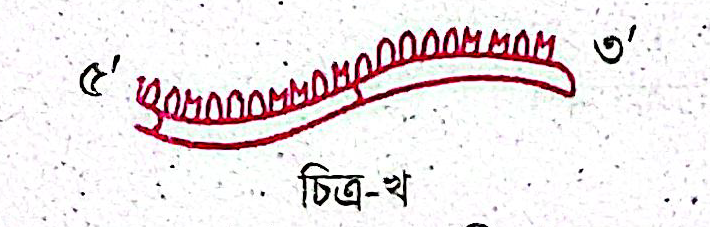 ৫′ ৩′
চিত্র-খ